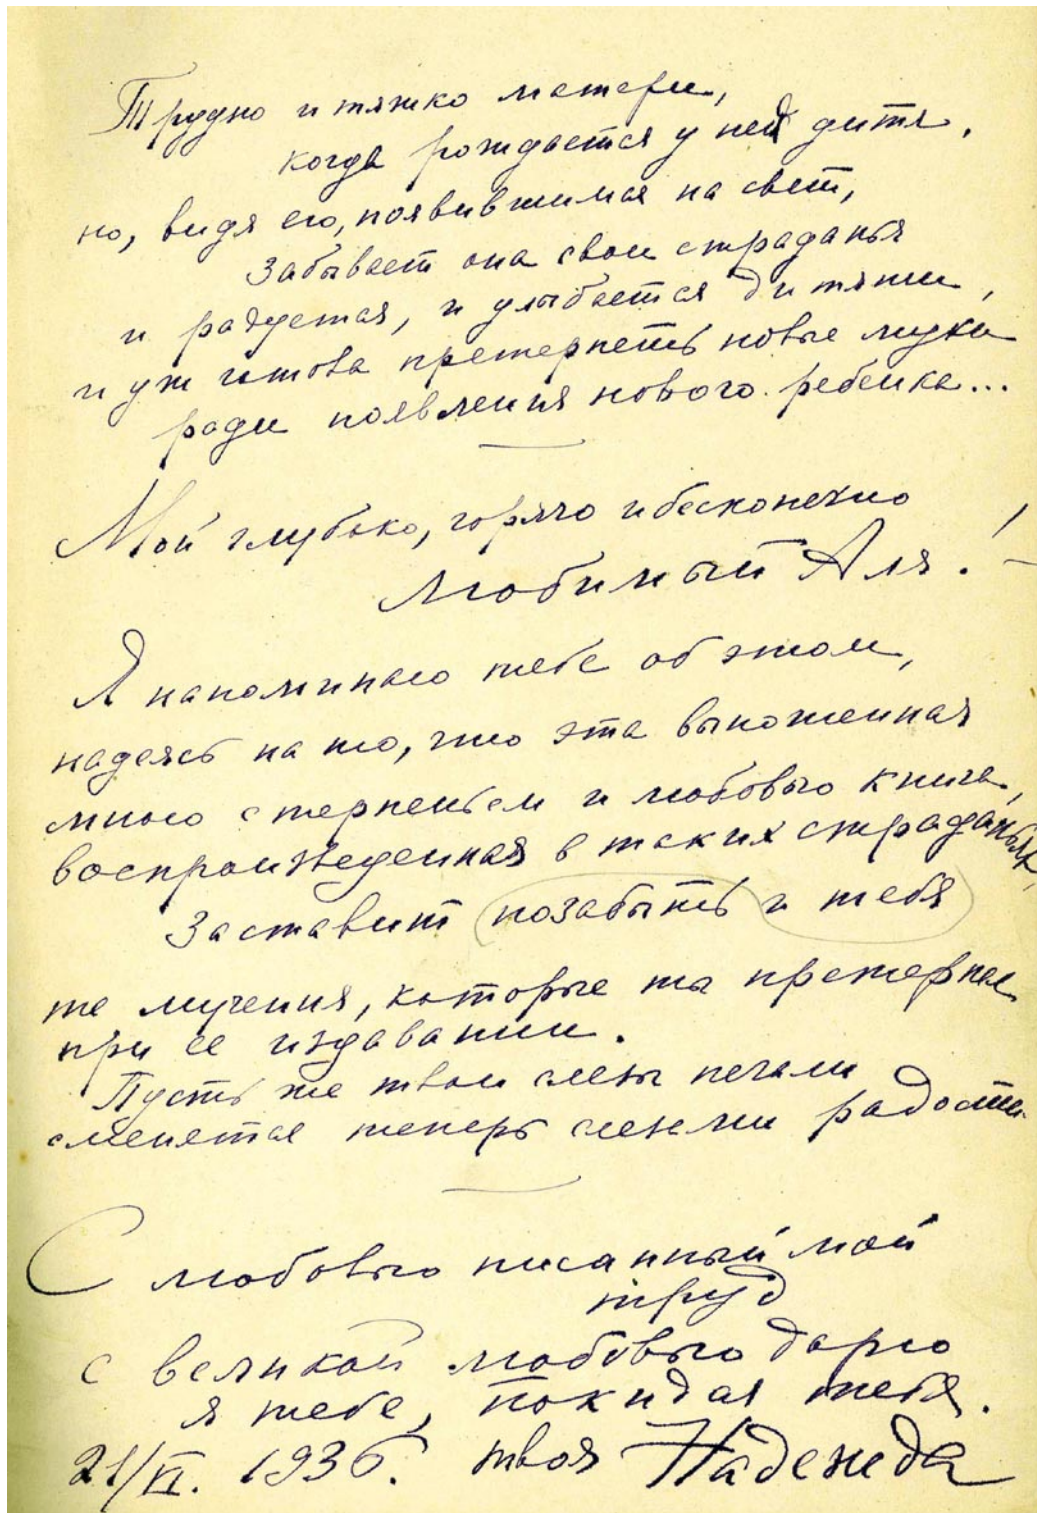 Трудно и тяжко матери,
когда рождается у ней дитя,
но, видя его, появившимся на свет,
забывает она свои страданья
и радуется, и улыбается дитяти,
и уж готова претерпеть новые муки
ради появления нового ребенка...
Мой глубоко, горячо и бесконечно
любимый Аля! —
Я напоминаю тебе об этом,
надеясь на то, что эта выношенная
мною с терпеньем и любовью книга,
воспроизведенная в таких страданьях,
заставит позабыть и тебя
те мучения, которые ты претерпел
при ее издавании.
Пусть же твои слезы печали
сменятся теперь слезами радости
С любовью писанный мой
труд
с великой любовью дарю
я тебе, покидая тебя.
21/VI. 1936. твоя Надежда